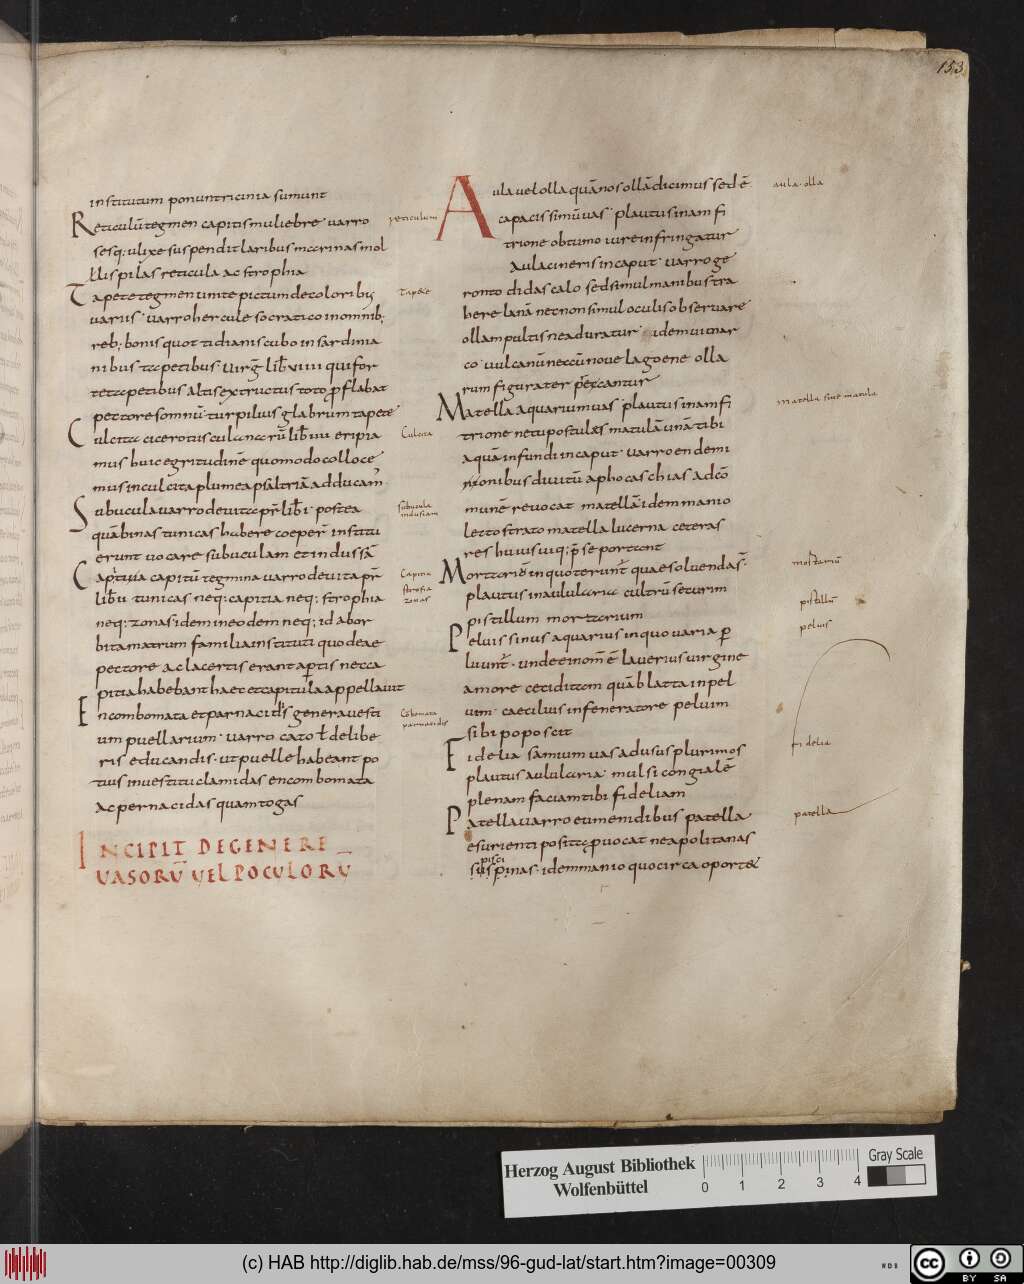 153
institutum ponuntricinia sumunt
Reticulū tegmen capitis muliebre · varro
sesq; ulixe suspendit laribus mcerinas mol
llis pilas reticula ac strophia
Tapete tegmen unite pictum de coloribꝰ
variis · varro hercule socratico in omnib;
reb; bonis quottidianis cubo in sardinia
nibus tapetibus · virḡ lib̄ viiii qui for
te tapetibus altis extructus toto ꝓflabat
pectore somnū · turpilius glabrum tapete
Culcita cicero tusculanarū lib̄ iiii eripia
mus huic egritudinē quomodo colloce
mus in culcita plumea psaltriā adducam
Subucula varro de vita pr̄ lib̄ i· postea
quā binas tunicas habere coeper̄ institu
erunt vocare subuculam et indussā
Capitia capitū tegmina varro de vita pr̄
lib̄ u tunicas neq; capitia neq; strophia
neq; zonas idem in eodem neq; id abor
bita matrum familia instituti quod eae
pectore ac lacertis erant aꝑtis nec ca
pitia habebant haec et capitula appellavit
Encombomata et parnacidas genera vesti
um puellarium · varro cato ł de libe
ris educandis · ut puelle habeant po
tius in vestitu clamidas encombomata
ac pernacidas quam togas
INCIPIT DE GENERE
VASORŪ VEL POCULORŪ
reticulum
Tapete
Culcita
subucula
indusiam
Capitia
strofia
zonas
Cōbomata
parnacidis
Aula vel olla quā nos ollā dicimus sed ē
capacissimū vas · plautus in amfi
trione obtuno iure infringatur
aula cineris in caput · varro ge
ronto didascalo sed simul manibus tra
here lanā nec non simul oculis observare
ollam pultis ne aduratur · idem vinar
co · vulcanū neccū nove lagoene olla
rum figurater p̄tcantur
Matella aquarium vas · plautus in amfi
trione ne tu postules matulā unā tibi
aquā infundi in caput · varro endemi
monibus divitū aphocas chias ad cō
munē revocat matellā idem manio
lecto strato matella lucerna ceteras
res huius uiq; ꝑ se portant
Mortariō in quo terunt̄ quae solvendas̄ ·
plautus in aulularia cultrū securim
pistillum mortarium
Pelvis sinus aquarius in quo varia ꝑ
luunt̄ · unde ei nom̄ ē laverius virgine
amore cecidi tam quāb latta in pel
vim · caecilius in feneratore pelvim
sibi poposcit
Fidelia samium vas ad usus plurimos
plautus aulularia · mulsi congialē
plenam faciam tibi fideliam
Patella varro eumenidibus patella
esurienti posita ꝓuocat neapolitanas
pisci
suspinas · idem manio quocirca oportet
aula · olla
Matella sive matula
mortariū
pistillū
pelvis
fidelia
patella
Herzog August Bibliothek
Wolfenbüttel
0 1 2 3 4
Gray Scale
(c) HAB http://diglib.hab.de/mss/96-gud-lat/start.htm?image=00309
WDB
cc BY SA